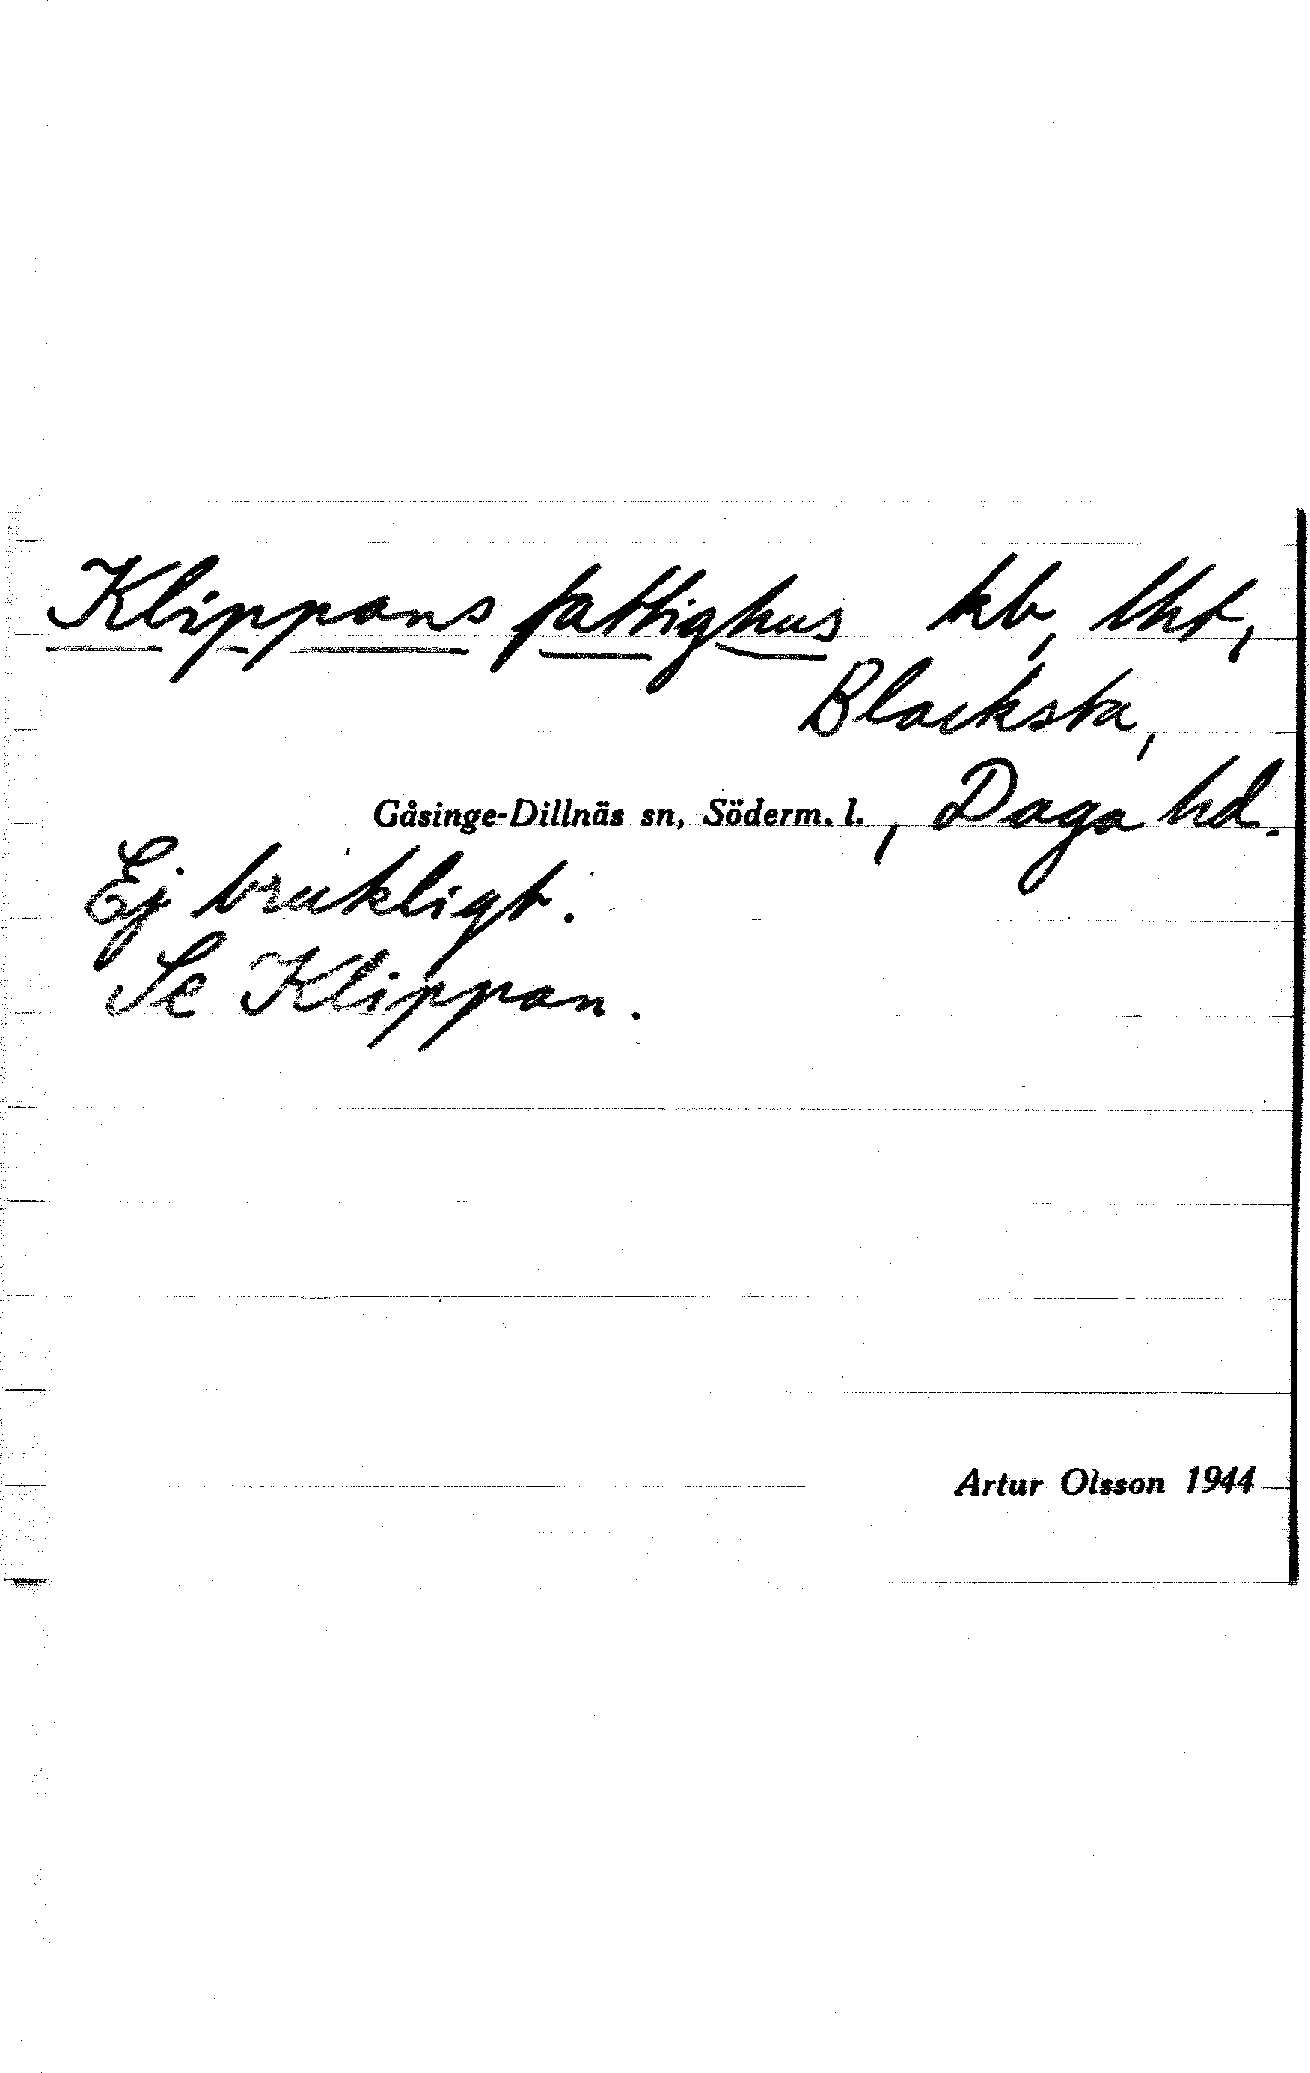 Klippans fattighus kb, lht,
Blacksta,
Gåsinge-Dillnäs sn, Söderm. l., Daga hd.
Ej brukligt.
Se Klippan.
Artur Olsson 1944